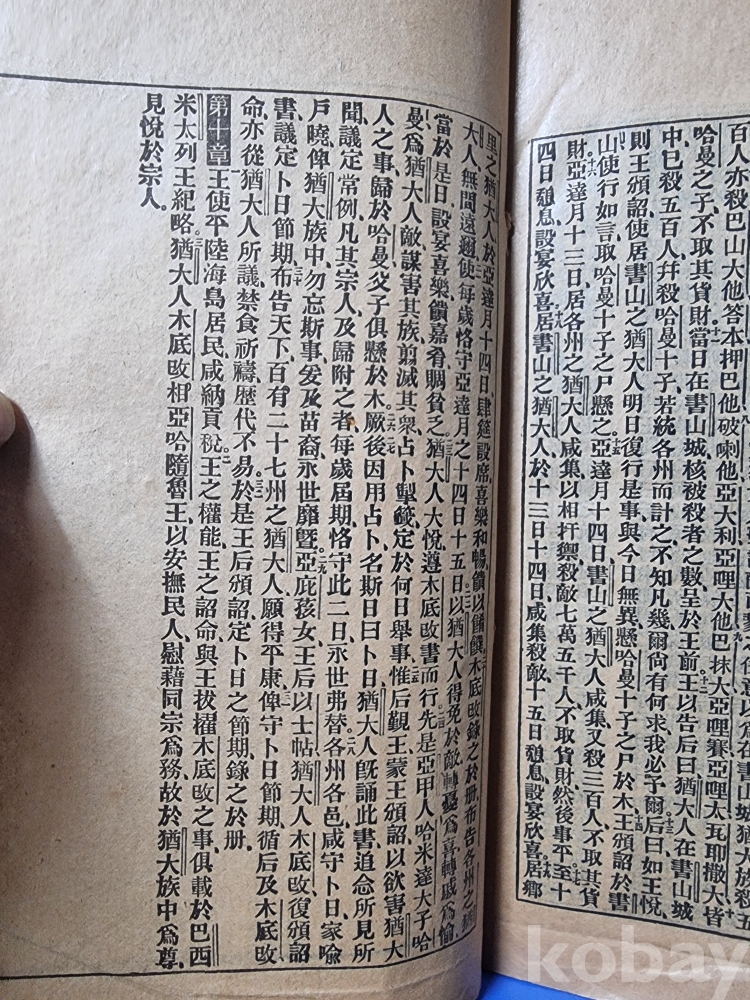 在書山城猶大族殺五
百人亦殺巴山大他答本押巴他破喇他亞大利亞哩大他巴抹大亞哩賽亞哩太瓦耶撒大皆
哈曼之子不取其貨財當日在書山城核被殺者之數呈於王前王以告后曰猶大人在書山城
中已殺五百人并殺哈曼十子若統各州而計之不知凡幾爾尙有何求我必予爾后曰如王悅、
則王頒詔使居書山之猶大人明日復行是事與今日無異懸哈曼十子之尸於木王頒詔於書
山使行如言取哈曼十子之尸懸之亞達月十四日書山之猶大人咸集又殺三百人不取其貨
財、亞達月十三日、居各州之猶大人咸集以相扞禦殺敵七萬五千人不取貨財、然後事平至十
四日憩息設宴欣喜居書山之猶大人於十三日十四日咸集殺敵十五日憩息設宴欣喜居鄉
里之猶大人於亞達月十四日肆筵設席喜樂和暢饋以饎饌木底改錄之於册布告各州之猶
大人無間遠邇使每歲恪守亞達月之十四日十五日以猶大人得免於敵轉憂爲喜轉戚爲愉
當於是日設宴喜樂饋嘉肴賙貧乏猶大人大悅遵木底改書而行先是亞甲人哈米達大子哈
曼爲猶大人敵謀害其族翦滅其衆占卜掣籤定於何日舉事惟后覲王蒙王頒詔以欲害猶大
人之事歸於哈曼父子俱懸於木厥後因用占卜名斯日曰卜日猶大人旣誦此書追念所見所
聞議定常例凡其宗人及歸附之者每歲屆期恪守此二日永世弗替各州各邑咸守卜日家喩
戶曉俾猶大族中勿忘斯事爰及苗裔永世靡曁亞庇孩女王后以士帖猶大人木底改復頒詔
書議定卜日節期布告天下百有二十七州之猶大人願得平康俾守卜日節期循后及木底改
命亦從猶大人所議禁食祈禱歷代不易於是王后頒詔定卜日之節期錄之於册、
第十章王使平陸海島居民咸納貢稅王之權能王之詔命與王拔擢木底改之事俱載於巴西
米太列王紀略猶大人木底改相亞哈隨魯王以安撫民人慰藉同宗爲務故於猶大族中爲尊
見悅於宗人、
kobay